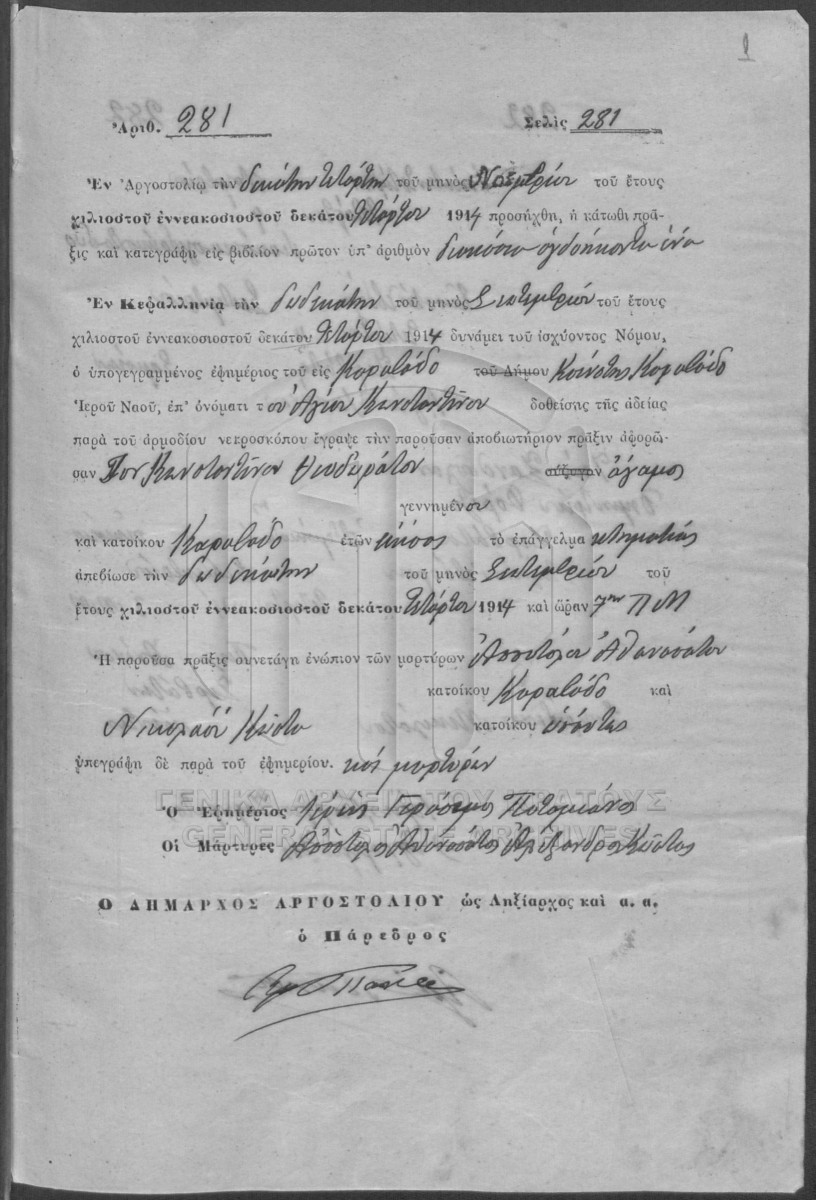 1
Ἀριθ. 281 Σελὶς 281
Ἐν Ἀργοστολίῳ τὴν δεκάτην τετάρτην τοῦ μηνὸς Νοεμβρίου τοῦ ἔτους
χιλιοστοῦ ἐννεακοσιοστοῦ δεκάτου τετάρτου 1914 προσήχθη, ἡ κάτωθι πρᾶ-
ξις καὶ κατεγράφη εἰς βιβλίον πρῶτον ὑπ' ἀριθμὸν διακόσια ὀγδοήκοντα ἕνα
Ἐν Κεφαλληνίᾳ τὴν δωδεκάτην τοῦ μηνὸς Σεπτεμβρίου τοῦ ἔτους
χιλιοστοῦ ἐννεακοσιοστοῦ δεκάτου τετάρτου 1914 δυνάμει τοῦ ἰσχύοντος Νόμου,
ὁ ὑπογεγραμμένος ἐφημέριος τοῦ εἰς Καραβάδο τοῦ Δήμου Κοινότης Καραβάδο
Ἱεροῦ Ναοῦ, ἐπ' ὀνόματι τοῦ Ἁγίου Κωνσταντίνου δοθείσης τῆς ἀδείας
παρὰ τοῦ ἁρμοδίου νεκροσκόπου ἔγραψε τὴν παροῦσαν ἀποβιωτήριον πρᾶξιν ἀφορῶ-
σαν Τον Κωνσταντῖνον Θεοδωράτον σύζυγον ἄγαμος
γεννημένον
καὶ κατοίκου Καραβάδο ἐτῶν εἴκοσι τὸ ἐπάγγελμα κτηματίας
ἀπεβίωσε τὴν δωδεκάτην τοῦ μηνὸς Σεπτεμβρίου τοῦ
ἔτους χιλιοστοῦ ἐννεακοσιοστοῦ δεκάτου τετάρτου 1914 καὶ ὥραν 7ην ΠΜ
Ἡ παροῦσα πρᾶξις συνετάγη ἐνώπιον τῶν μαρτύρων Ἀποστόλου Ἀθανασάτου
κατοίκου Καραβάδο καὶ
Νικολάου Κώστα κατοίκου
ὑπεγράφη δὲ παρὰ τοῦ ἐφημερίου. καὶ μαρτύρων
Ὁ Ἐφημέριος Ἱερεὺς Γεράσιμος Ποταμιάνος
Οἱ Μάρτυρες Ἀπόστολος Ἀθανασάτος Ἀλέξανδρος Κώστας
Ο ΔΗΜΑΡΧΟΣ ΑΡΓΟΣΤΟΛΙΟΥ ὡς Ληξίαρχος καὶ α. α.
ὁ Πάρεδρος
ΓΕΝΙΚΑ ΑΡΧΕΙΑ ΤΟΥ ΚΡΑΤΟΥΣ
GENERAL STATE ARCHIVES